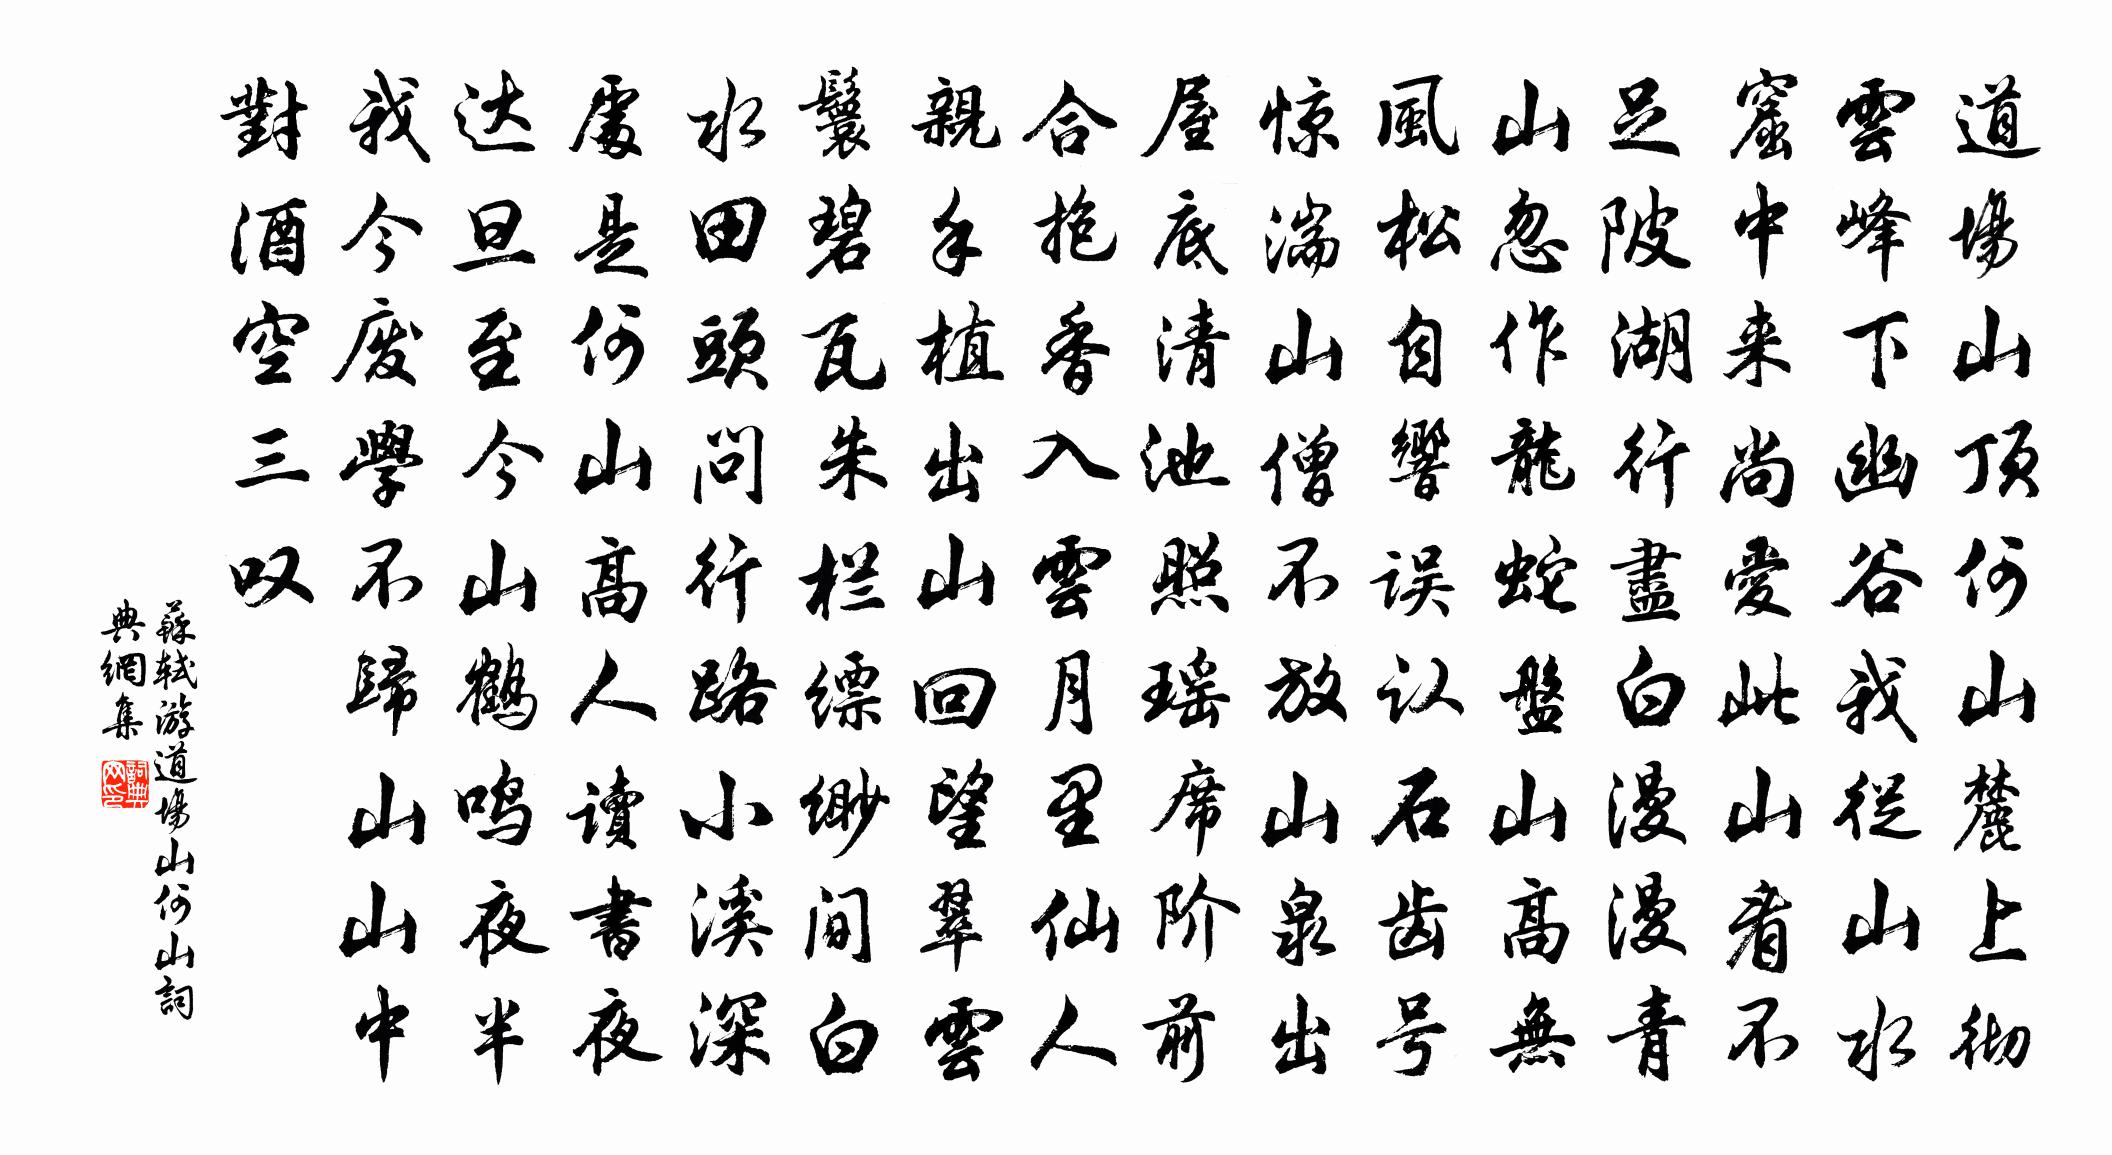 道場山顶何山麓上彻
雲峰下幽谷我從山水
窟中来尚愛此山看不
足陂湖行盡白漫漫青
山忽作龍蛇盤山高無
風松自響误认石齿号
惊湍山僧不放山泉出
屋底清池照瑶席阶前
合抱香入雲月里仙人
親手植出山回望翠雲
鬟碧瓦朱栏缥缈间白
水田頭問行路小溪深
處是何山高人讀書夜
达旦至今山鶴鸣夜半
我今废學不歸山山中
對酒空三叹
蘇轼游道場山何山詞
典網集
詞典网印